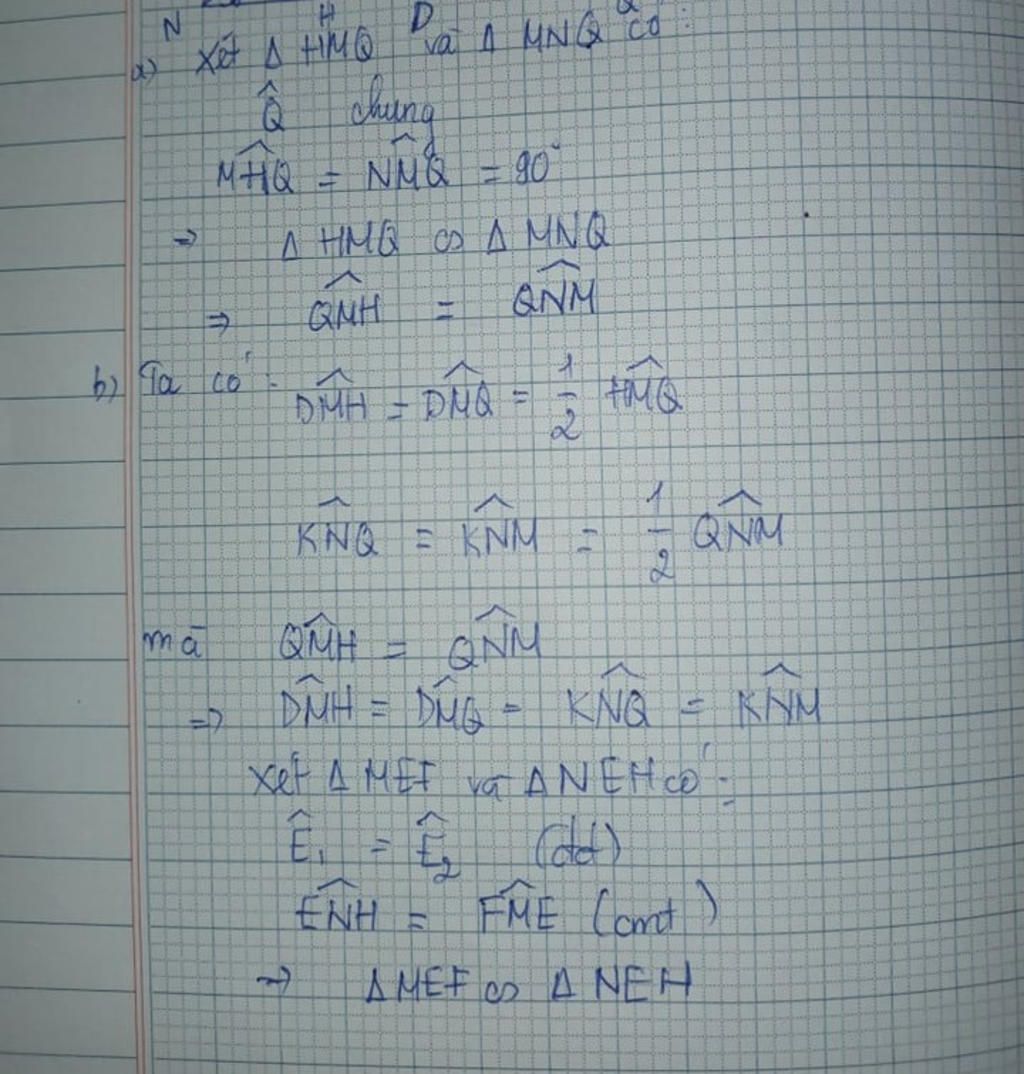 N H D Q
a) Xét Δ HMQ và Δ MNQ có :
Q̂ chung
M̂HQ = N̂MQ = 90°
⇒ Δ HMQ ∽ Δ MNQ
⇒ Q̂MH = Q̂NM
b) Ta có : D̂MH = D̂MQ = 1/2 ĤMQ
K̂NQ = K̂NM = 1/2 Q̂NM
mà Q̂MH = Q̂NM
⇒ D̂MH = D̂MQ = K̂NQ = K̂NM
Xét Δ MEF và Δ NEH có :
Ê₁ = Ê₂ (dd)
ÊNH = F̂ME (cmt)
⇒ Δ MEF ∽ Δ NEH